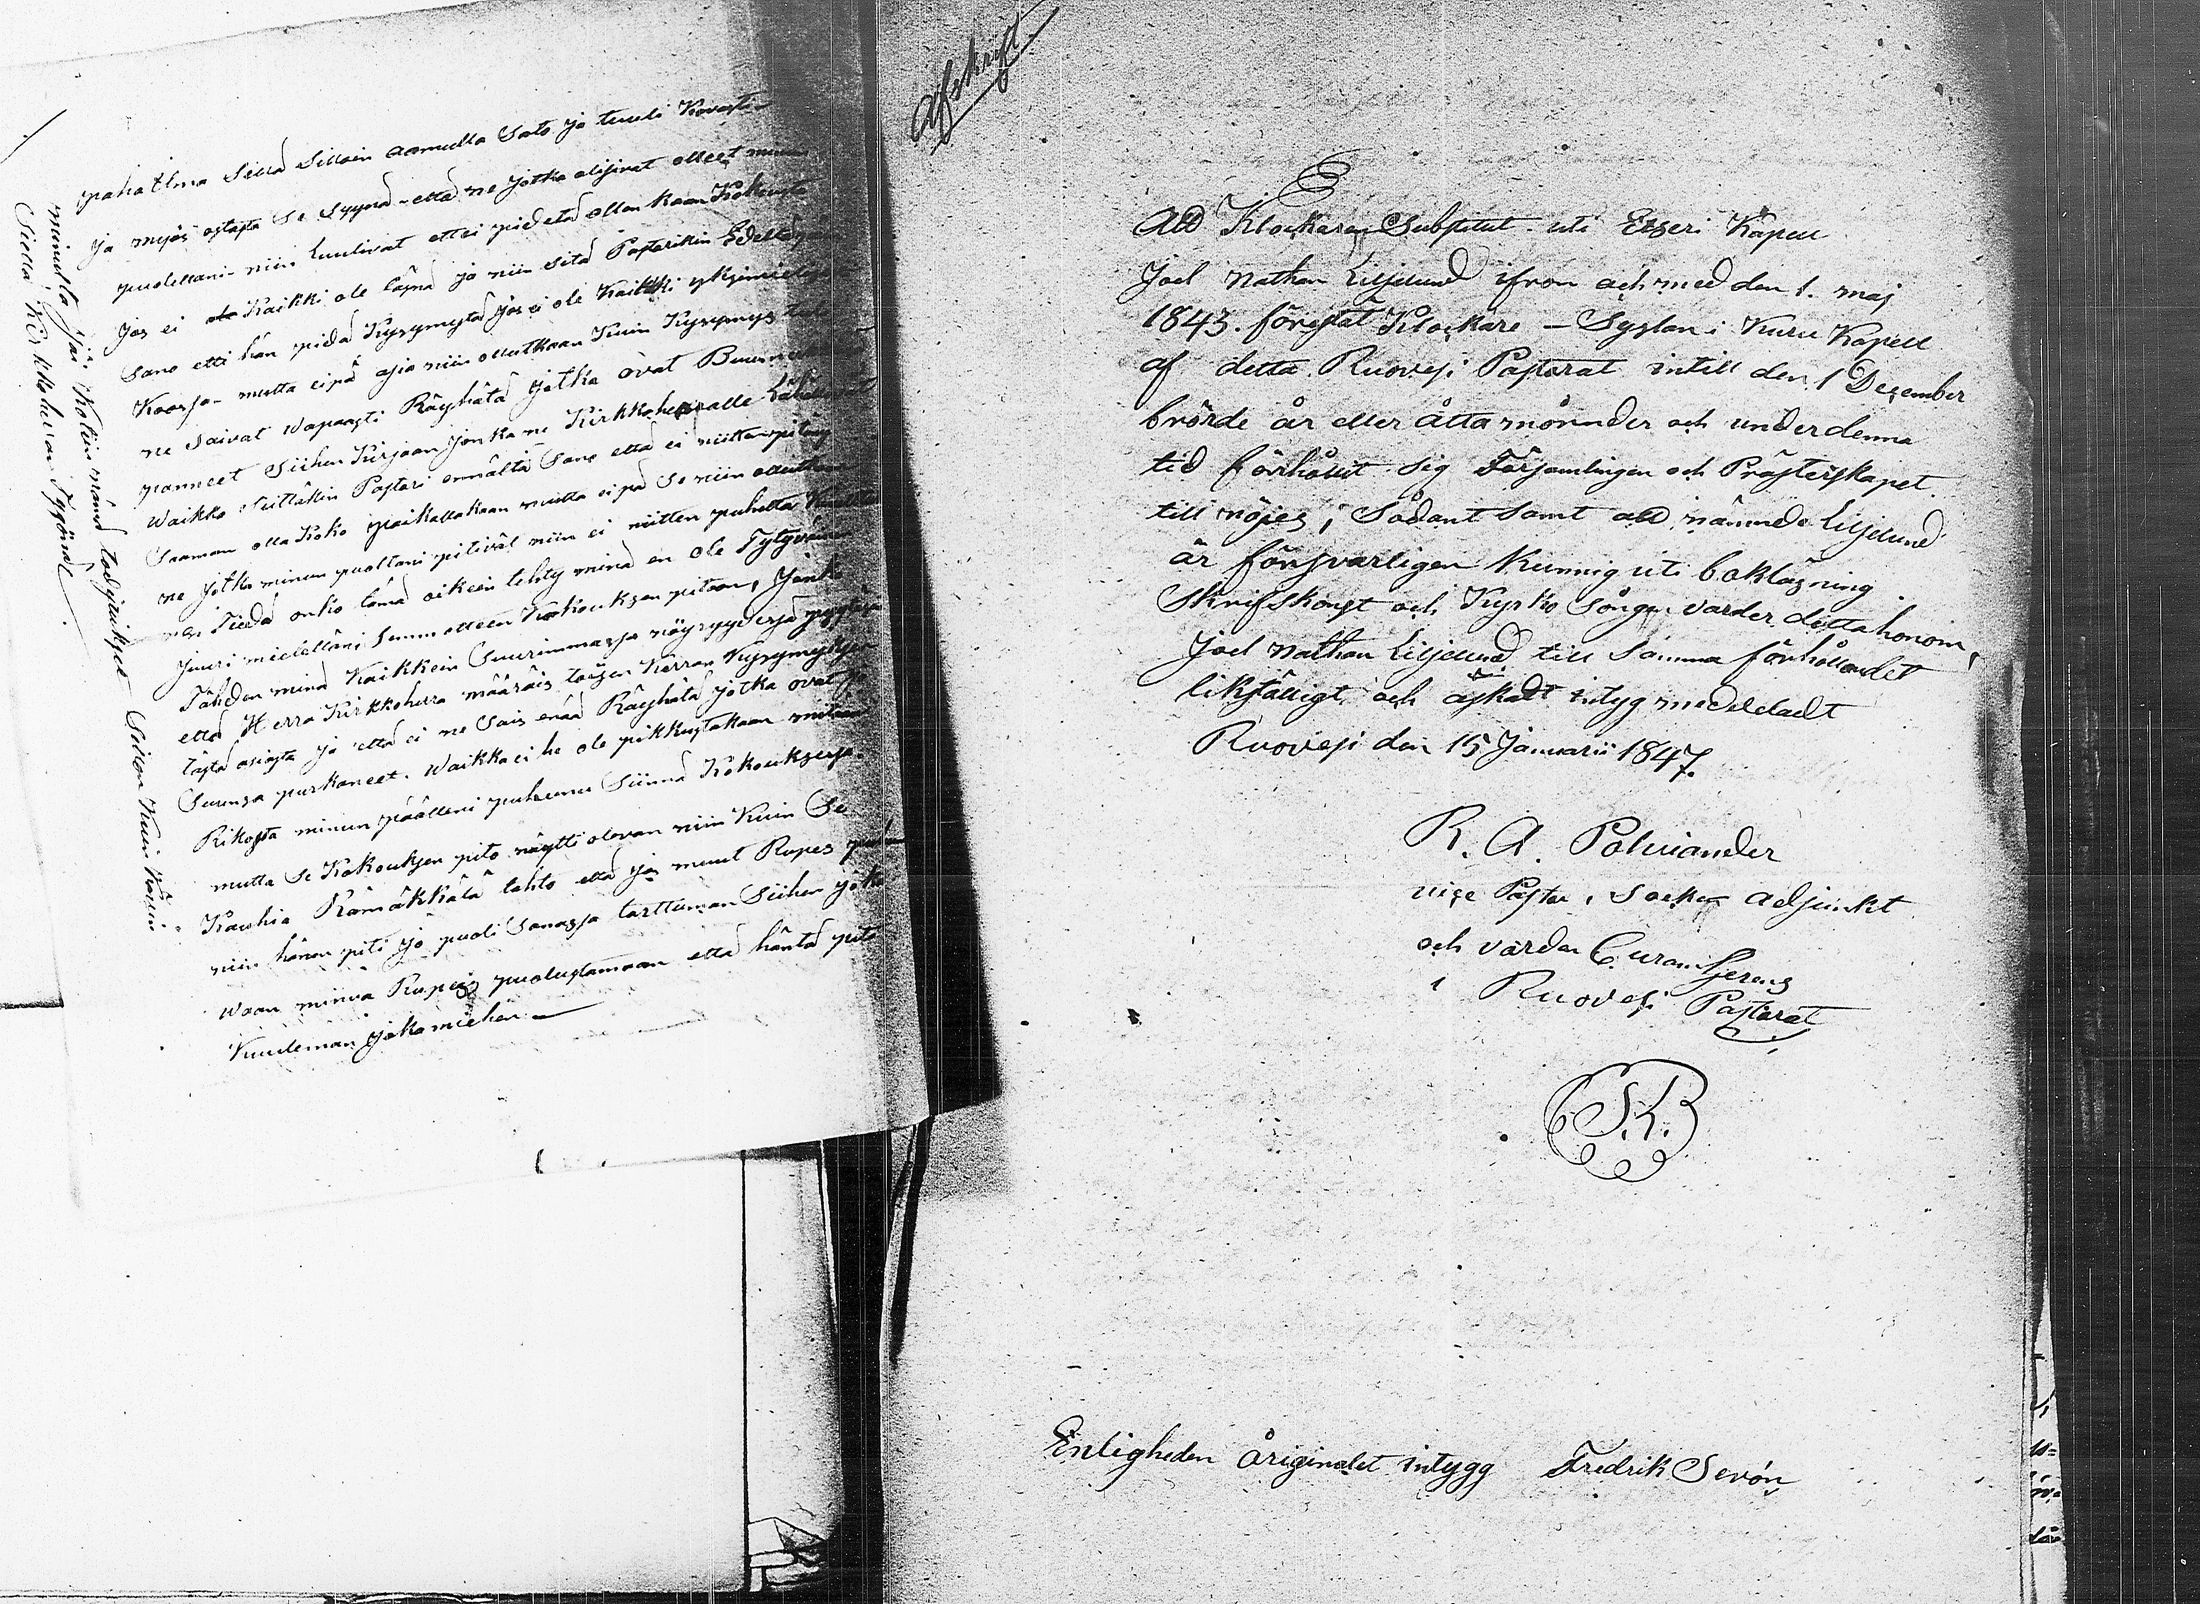 paha ilma Sillä Silloin aamulla Sato ja tuuli Kovasti
ja myös ostasta se Syynä että ne jotka olisivat olleet minun
puolellani niin luulivat ettei pidetä ollen kaan Kokousta
Jos ei Kaikki ole läsnä ja niin sitä Pastorikin Edellä
Sano etti hän pidä Kysymystä jos ei ole Kaikki yksimielisesti
Koossa mutta eipä asia niin ollutkaan Kuin Kysymys tuli
ne Saivat wapaasti Räyhätä jotka ovat
panneet Siihen Kirjaan jonka ne Kirkkoherralle
Waikka Pastori ennältä Sano että ei niitten pitäny
Saaman olla Koko paikallakaan mutta eipä Se niin ollutkaan
ne jotka minun puoltani pitivät niin ei niitten puhetta
nen Tiedä onko tämä oikein tehty minä en ole Tytyväinen
Juuri mielelläni Kokouksen pitoon, Jonka
Tähden minä Kaikkein Suurimmassa nöyryydessä pyydän
että Herra Kirkkoherra määräis toisen Kerran Kysymyksen
tästä asiasta ja että ei ne Sais enää Räyhätä jotka ovat
Suunsa purkaneet. Waikka ei he ole pikkustakaan mitään
Rikosta minun päälleni puhunu Siinä Kokouksessa.
mutta Se Kokouksen pito näytti olevan niin Kuin Se
Kauhia Rämäkkätä tahto että jos muut Rupes
niin hänen piti jo puoli Sanassa tarttuman Siihen
waan minua Rupeis puolustamaan että häntä piti
Kuuleman joka miehen
minusta jäi Kolein nämä todistukset Silloin Kuin Kävin
Siellä Kirkkoherran Tyyönä
Afskrift
Att Klockaren Substitut uti Etseri Kapell
Joel Nathan Liljelund ifrån och med den 1. maj
1843. förestått Klockare-Sysslan i Kuru Kapell
af detta Ruovesi Pastorat intill den 1 December
berörde år eller åtta månnder och under denna
tid förhållit Sig Församlingen och Prästerskapet
till nöjes; Sådant Samt att nämnde Liljelund
är försvarligen Kunnig uti bokläsning
Skrifskonst och Kyrko Sången varder detta honom,
Joel Nathan Liljelund till Samma förhållandet
likfälligt och äskadt intyg meddeladt
Ruovesi den 15 Januarii 1847.
R. A. Polviander
vice Pastor, Socken adjunkt
och vården Curam Gerens
i Ruovesi Pastorat
S.K.B
Enligheden åriginalet intygg Fredrik Sevón